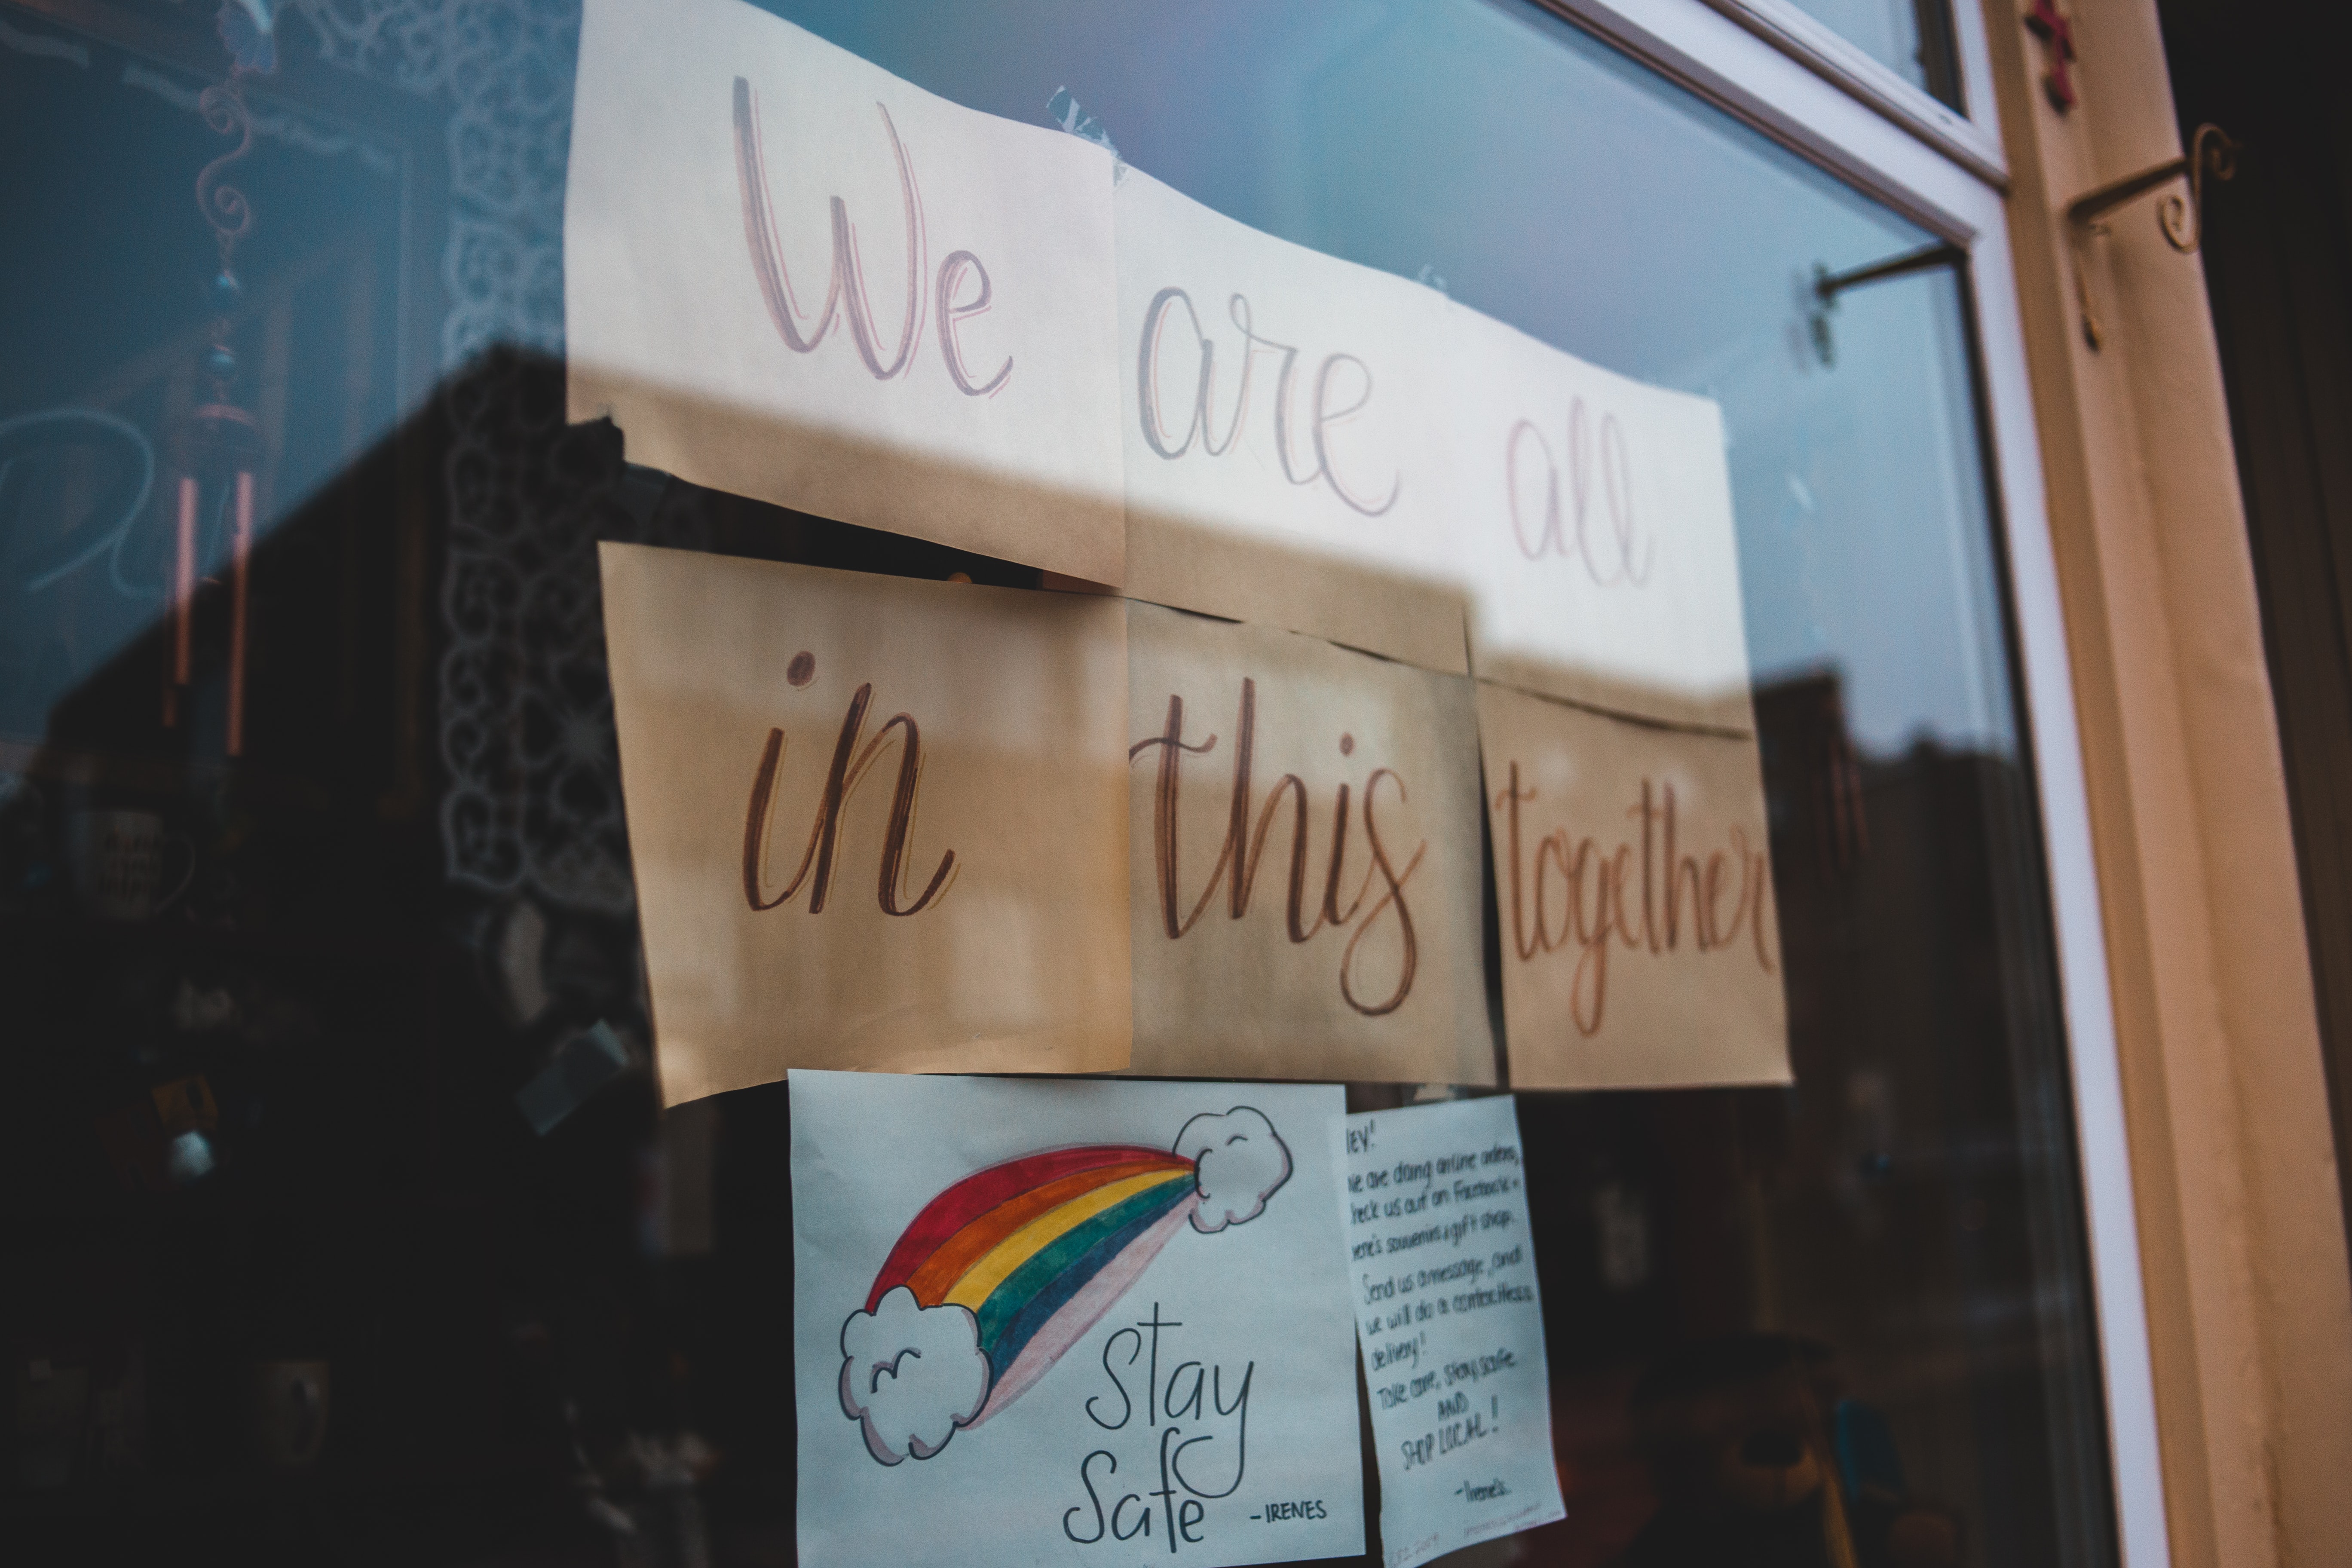 We are all
in this together
Stay
Safe
- IRENES
ey!
e are doing online orders,
heck us out on Facebook -
rene's souvenirs & gift shop.
Send us a message, and
we will do a contactless
delivery!
Take care, stay safe
AND
SHOP LOCAL!
- Irene's